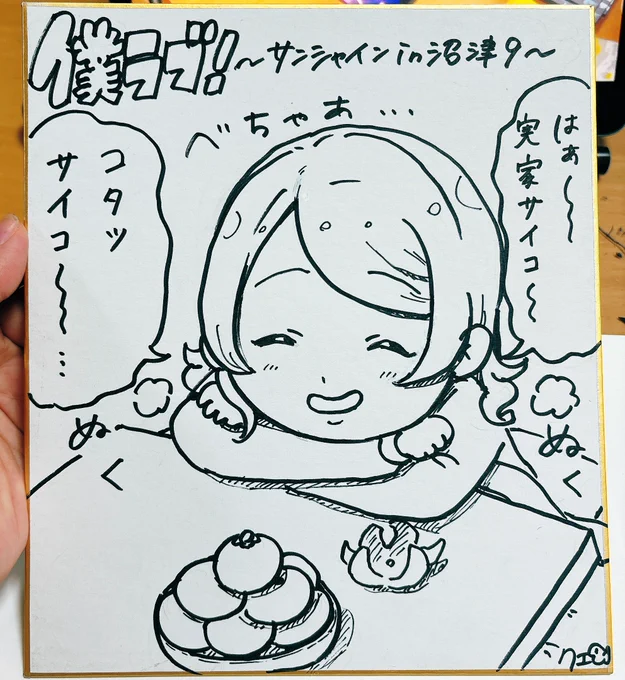 僕ラブ!～サンシャインin沼津9～
べちゃあ…
はぁ～～
実家サイコ～～
コタツ
サイコ～～～…
ぬく
ぬく